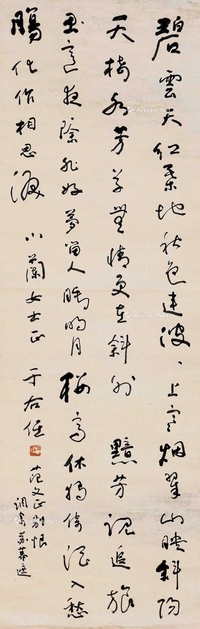 碧雲天红葉地秋色連波、上寒烟翠山映斜陽
天接水芳草無情更在斜外 黯芳魂追旅
思夜夜除非好夢留人睡明月 樓高休獨倚酒入愁
腸化作相思淚 小蘭女士正 于右任
范文正别恨
調寄苏幕遮